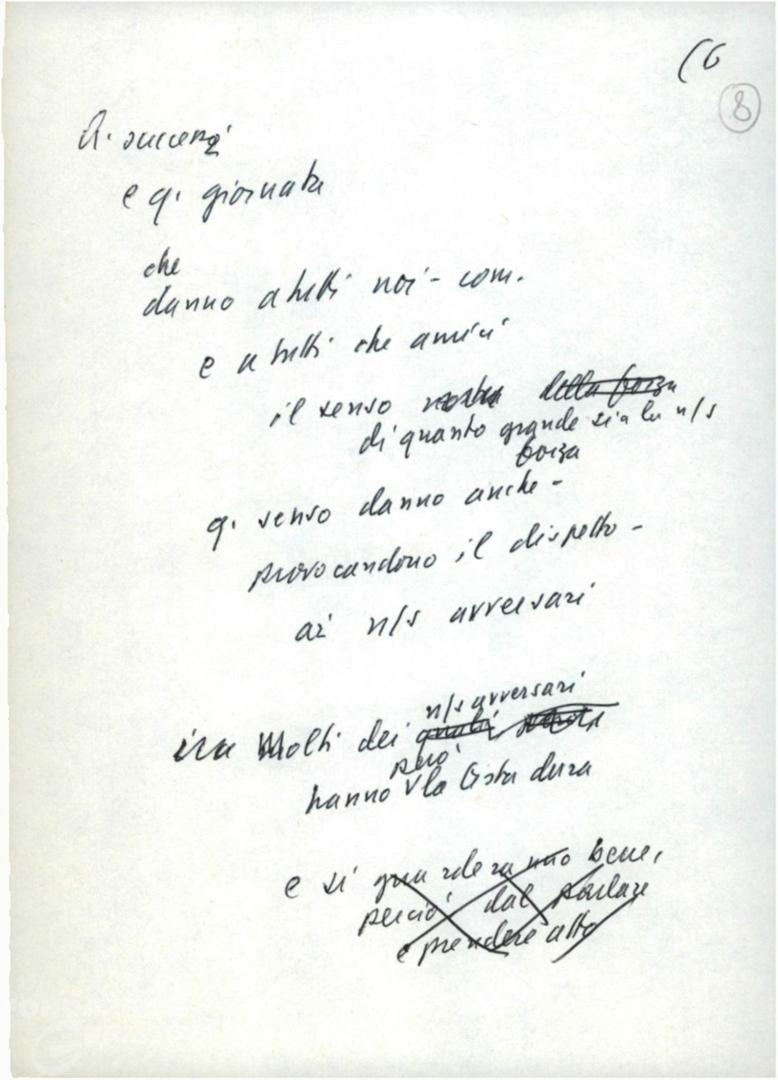 (6
8
q. successi
e q. giornata
che
danno a tutti noi - com.
e a tutti che amici
il senso della forza
di quanto grande sia la n/s
forza
q. senso danno anche -
provocandono il dispetto -
ai n/s avversari
n/s avversari
Molti dei quali
però
hanno la testa dura
e si guarderanno bene,
perciò dal parlare
e prendere atto